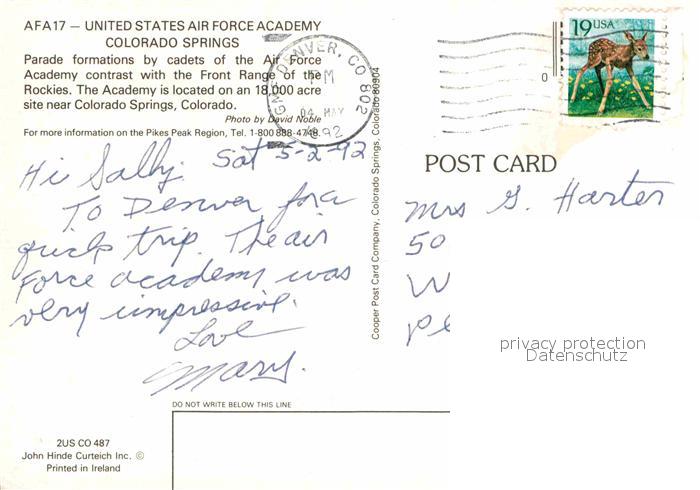 AFA17 — UNITED STATES AIR FORCE ACADEMY
COLORADO SPRINGS
Parade formations by cadets of the Air Force
Academy contrast with the Front Range of the
Rockies. The Academy is located on an 18,000 acre
site near Colorado Springs, Colorado.
Photo by David Noble
For more information on the Pikes Peak Region, Tel. 1-800 888-4748.
DENVER, CO 802
PM
04 MAY
1992
19 USA
0
Sat 5-2-92
Hi Sally.
To Denver for a
quick trip. The air
Force academy was
very impressive.
Love
Mary.
Cooper Post Card Company, Colorado Springs, Colorado 80904
POST CARD
Mrs G. Harter
50
W
Pe
privacy protection
Datenschutz
DO NOT WRITE BELOW THIS LINE
2US CO 487
John Hinde Curteich Inc. ©
Printed in Ireland